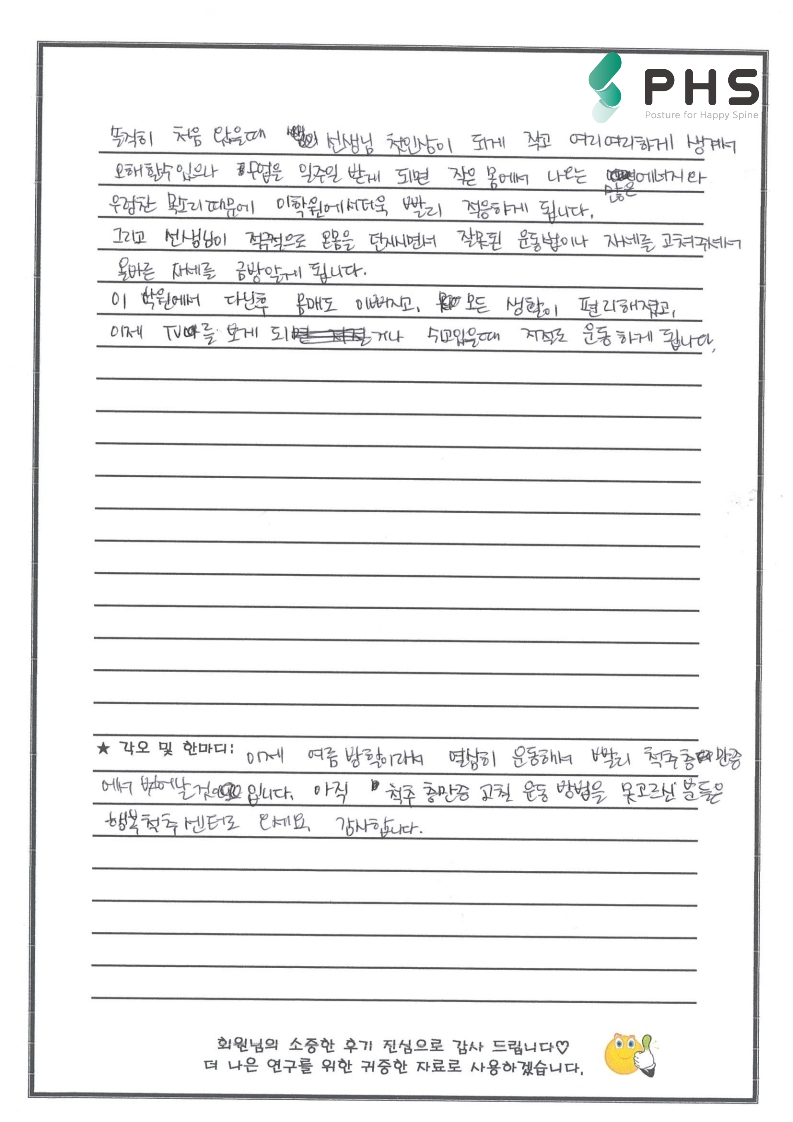 PHS
Posture for Happy Spine
솔직히 처음 왔을때 선생님 첫인상이 되게 작고 여리여리하게 생겨서
오해할수 있으나 수업을 일주일 받게 되면 작은 몸에서 나오는 많은 에너지와
우렁찬 목소리 때문에 이학원에서더욱 빨리 적응하게 됩니다.
그리고 선생님이 적극적으로 온몸을 만지시면서 잘못된 운동법이나 자세를 고쳐주셔서
올바른 자세를 금방알게 됩니다.
이 학원에서 다닌후 몸매도 이뻐지고, 모든 생활이 편리해졌고,
이제 TV를 보게 되거나 쉬고있을때 저절로 운동하게 됩니다.
★ 각오 및 한마디: 이제 여름 방학이라서 열심히 운동해서 빨리 척추측만증
에서 벗어날것입니다. 아직 척추측만증 고칠 운동 방법을 못고르신 분들은
행복척추센터로 오세요. 감사합니다.
회원님의 소중한 후기 진심으로 감사 드립니다♡
더 나은 연구를 위한 귀중한 자료로 사용하겠습니다.